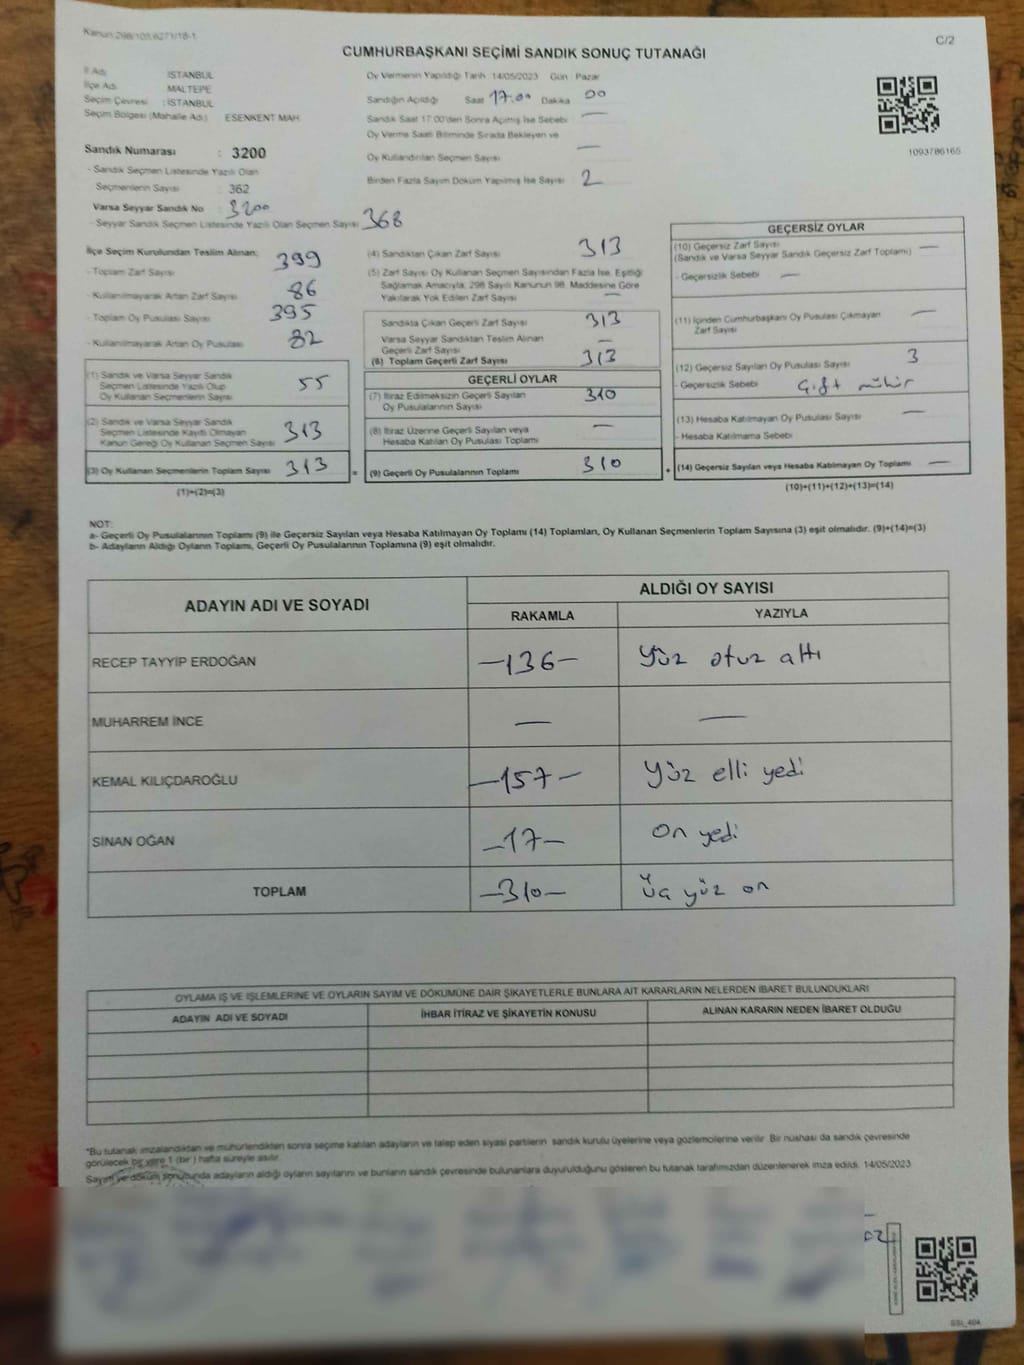 Kanun:298/103,6271/18-1
C/2
CUMHURBAŞKANI SEÇİMİ SANDIK SONUÇ TUTANAĞI
İl Adı : İSTANBUL
İlçe Adı : MALTEPE
Seçim Çevresi : İSTANBUL
Seçim Bölgesi (Mahalle Adı) : ESENKENT MAH
Sandık Numarası : 3200
- Sandık Seçmen Listesinde Yazılı Olan
Seçmenlerin Sayısı : 362
Varsa Seyyar Sandık No : 3200
- Seyyar Sandık Seçmen Listesinde Yazılı Olan Seçmen Sayısı 368
Oy Vermenin Yapıldığı Tarih 14/05/2023 Gün : Pazar
Sandığın Açıldığı Saat 17.00 Dakika 00
Sandık Saat 17:00'den Sonra Açılmış İse Sebebi —
Oy Verme Saati Bitiminde Sırada Bekleyen ve
Oy Kullandırılan Seçmen Sayısı —
Birden Fazla Sayım Döküm Yapılmış İse Sayısı 2
1093786165
İlçe Seçim Kurulundan Teslim Alınan;
- Toplam Zarf Sayısı 399
- Kullanılmayarak Artan Zarf Sayısı 86
- Toplam Oy Pusulası Sayısı 395
- Kullanılmayarak Artan Oy Pusulası 82
(1) Sandık ve Varsa Seyyar Sandık
Seçmen Listesinde Yazılı Olup
Oy Kullanan Seçmenlerin Sayısı 55
(2) Sandık ve Varsa Seyyar Sandık
Seçmen Listesinde Kayıtlı Olmayan
Kanun Gereği Oy Kullanan Seçmen Sayısı 313
(3) Oy Kullanan Seçmenlerin Toplam Sayısı 313
(1)+(2)=(3)
(4) Sandıktan Çıkan Zarf Sayısı 313
(5) Zarf Sayısı Oy Kullanan Seçmen Sayısından Fazla İse, Eşitliği
Sağlamak Amacıyla, 298 Sayılı Kanunun 98. Maddesine Göre
Yakılarak Yok Edilen Zarf Sayısı —
Sandıkta Çıkan Geçerli Zarf Sayısı 313
Varsa Seyyar Sandıktan Teslim Alınan
Geçerli Zarf Sayısı —
(6) Toplam Geçerli Zarf Sayısı 313
GEÇERLİ OYLAR
(7) İtiraz Edilmeksizin Geçerli Sayılan
Oy Pusulalarının Sayısı 310
(8) İtiraz Üzerine Geçerli Sayılan veya
Hesaba Katılan Oy Pusulası Toplamı —
= (9) Geçerli Oy Pusulalarının Toplamı 310
GEÇERSİZ OYLAR
(10) Geçersiz Zarf Sayısı —
(Sandık ve Varsa Seyyar Sandık Geçersiz Zarf Toplamı)
- Geçersizlik Sebebi —
(11) İçinden Cumhurbaşkanı Oy Pusulası Çıkmayan
Zarf Sayısı —
(12) Geçersiz Sayılan Oy Pusulası Sayısı 3
- Geçersizlik Sebebi Çift mühür
(13) Hesaba Katılmayan Oy Pusulası Sayısı —
- Hesaba Katılmama Sebebi
+ (14) Geçersiz Sayılan veya Hesaba Katılmayan Oy Toplamı —
(10)+(11)+(12)+(13)=(14)
NOT:
a- Geçerli Oy Pusulalarının Toplamı (9) ile Geçersiz Sayılan veya Hesaba Katılmayan Oy Toplamı (14) Toplamları, Oy Kullanan Seçmenlerin Toplam Sayısına (3) eşit olmalıdır. (9)+(14)=(3)
b- Adayların Aldığı Oyların Toplamı, Geçerli Oy Pusulalarının Toplamına (9) eşit olmalıdır.
ADAYIN ADI VE SOYADI
ALDIĞI OY SAYISI
RAKAMLA YAZIYLA
RECEP TAYYİP ERDOĞAN —136— Yüz otuz altı
MUHARREM İNCE — —
KEMAL KILIÇDAROĞLU —157— Yüz elli yedi
SİNAN OĞAN —17— On yedi
TOPLAM —310— Üç yüz on
OYLAMA İŞ VE İŞLEMLERİNE VE OYLARIN SAYIM VE DÖKÜMÜNE DAİR ŞİKAYETLERLE BUNLARA AİT KARARLARIN NELERDEN İBARET BULUNDUKLARI
ADAYIN ADI VE SOYADI İHBAR İTİRAZ VE ŞİKAYETİN KONUSU ALINAN KARARIN NEDEN İBARET OLDUĞU
*Bu tutanak imzalandıktan ve mühürlendikten sonra seçime katılan adayların ve talep eden siyasi partilerin sandık kurulu üyelerine veya gözlemcilerine verilir. Bir nüshası da sandık çevresinde
görülecek bir yere 1 (bir) hafta süreyle asılır.
Sayım ve döküm sonucunda adayların aldığı oyların sayılarını ve bunların sandık çevresinde bulunanlara duyurulduğunu gösteren bu tutanak tarafımızdan düzenlenerek imza edildi. 14/05/2023
SSI_40A